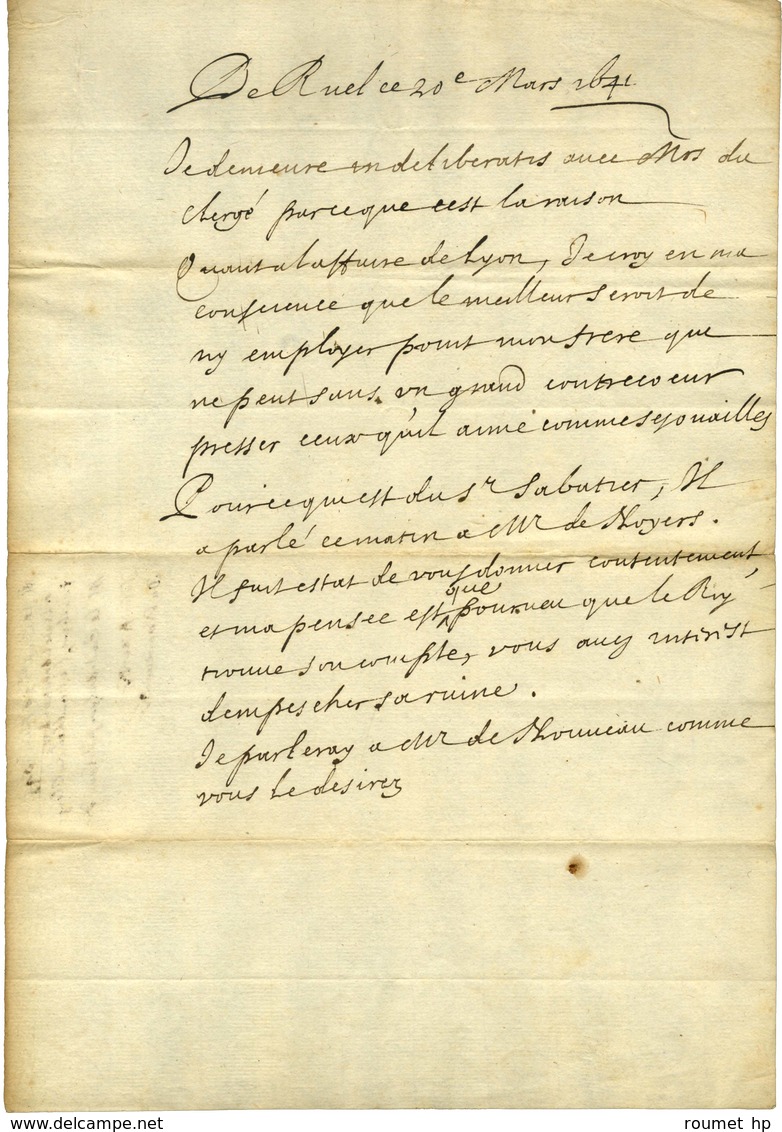 De Ruel ce 20e Mars 1641
Je demeure in deliberatis avec Mrs du
Clergé parce que cest la raison
Quant a laffaire de Lyon, Je croy en ma
conscience que le meilleur seroit de
ny employer point mon frere que
ne peut sans un grand contrecoeur
presser ceux qu'il aime comme ses ouailles
Pour ce qui est du Sr Sabatier, Il
a parlé ce matin a Mr de Noyers.
Il fait estat de vous donner contentement,
et ma pensee est que pourveu que le Roy
trouve son compte, vous avez interest
dempescher sa ruine.
Je parleray a Mr de Nouveau comme
vous le desirez
roumet hp